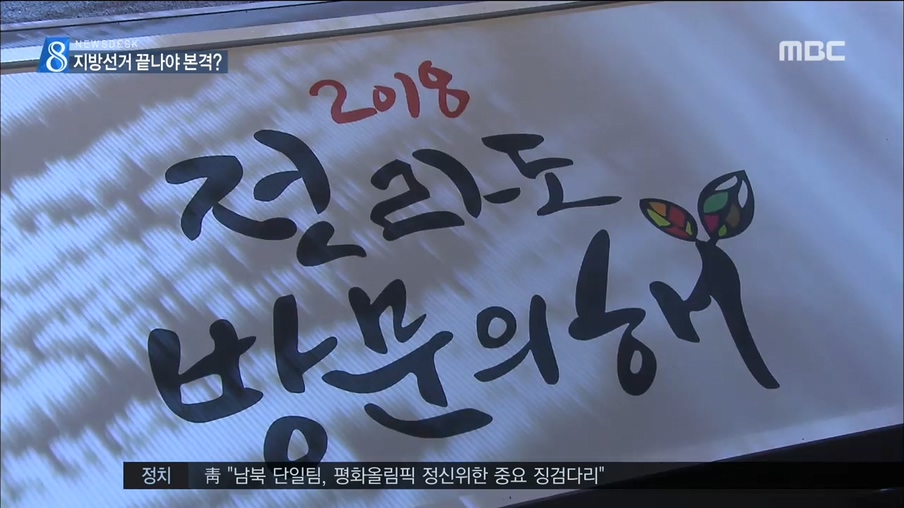 8 NEWSDESK
지방선거 끝나야 본격?
MBC
2018
전라도
방문의해
정치 靑 "남북 단일팀, 평화올림픽 정신위한 중요 징검다리"